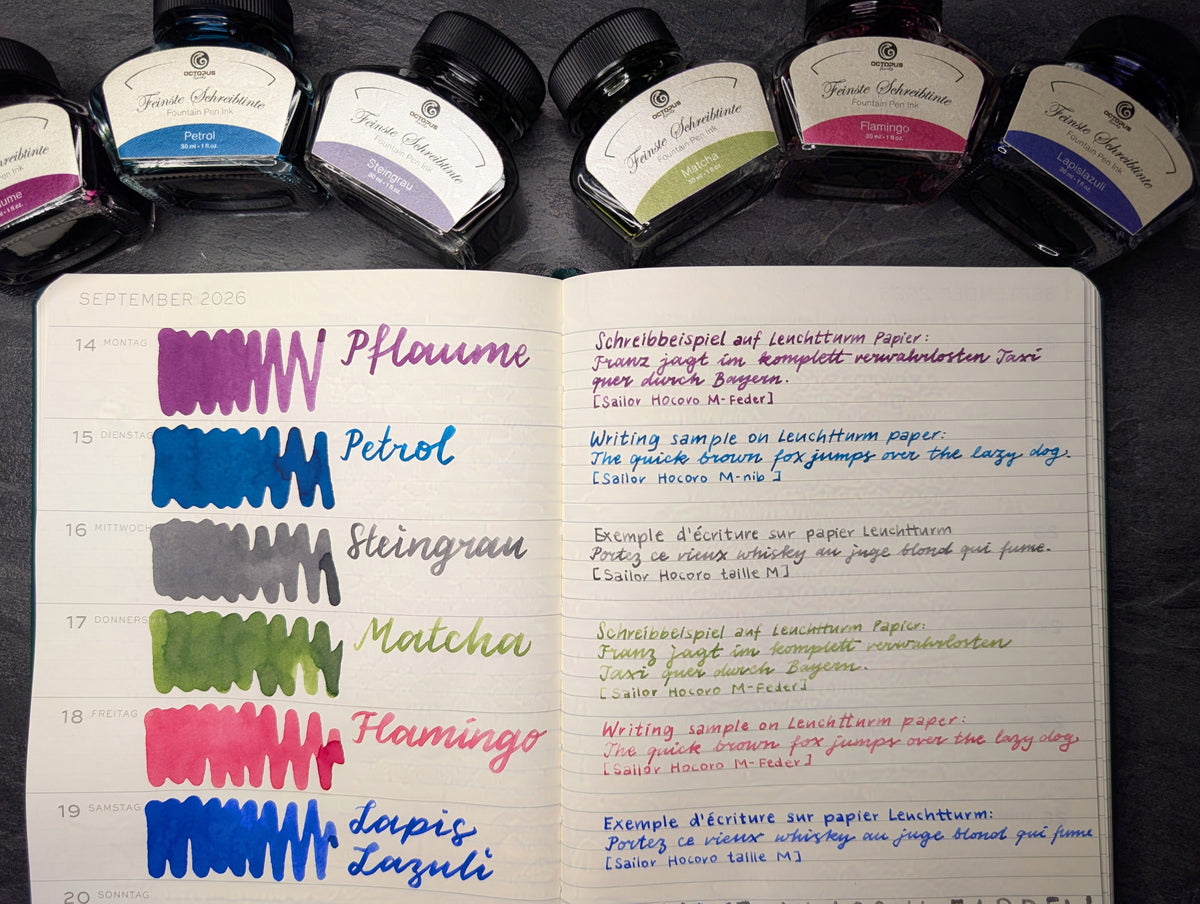 OCTOPUS
Feinste Schreibtinte
Fountain Pen Ink
Petrol
30 ml • 1 fl oz.
OCTOPUS
Feinste Schreibtinte
Fountain Pen Ink
Steingrau
30 ml • 1 fl oz.
OCTOPUS
Feinste Schreibtinte
Fountain Pen Ink
Matcha
30 ml • 1 fl oz.
OCTOPUS
Feinste Schreibtinte
Fountain Pen Ink
Flamingo
30 ml • 1 fl oz.
OCTOPUS
Feinste Schreibtinte
Fountain Pen Ink
Lapislazuli
30 ml • 1 fl oz.
Schreibtinte
Pen Ink
SEPTEMBER 2026
14 MONTAG
Pflaume
15 DIENSTAG
Petrol
16 MITTWOCH
Steingrau
17 DONNERST
Matcha
18 FREITAG
Flamingo
19 SAMSTAG
Lapis
Lazuli
20 SONNTAG
Schreibbeispiel auf Leuchtturm Papier:
Franz jagt im komplett verwahrlosten Taxi
quer durch Bayern.
[Sailor Hocoro M-Feder]
Writing sample on Leuchtturm paper:
The quick brown fox jumps over the lazy dog.
[Sailor Hocoro M-nib]
Exemple d'écriture sur papier Leuchtturm
Portez ce vieux whisky au juge blond qui fume.
[Sailor Hocoro taille M]
Schreibbeispiel auf Leuchtturm Papier:
Franz jagt im komplett verwahrlosten
Taxi quer durch Bayern.
[Sailor Hocoro M-Feder]
Writing sample on Leuchtturm paper:
The quick brown fox jumps over the lazy dog
[Sailor Hocoro M-Feder]
Exemple d'écriture sur papier Leuchtturm:
Portez ce vieux whisky au juge blond qui fume
[Sailor Hocoro taille M]